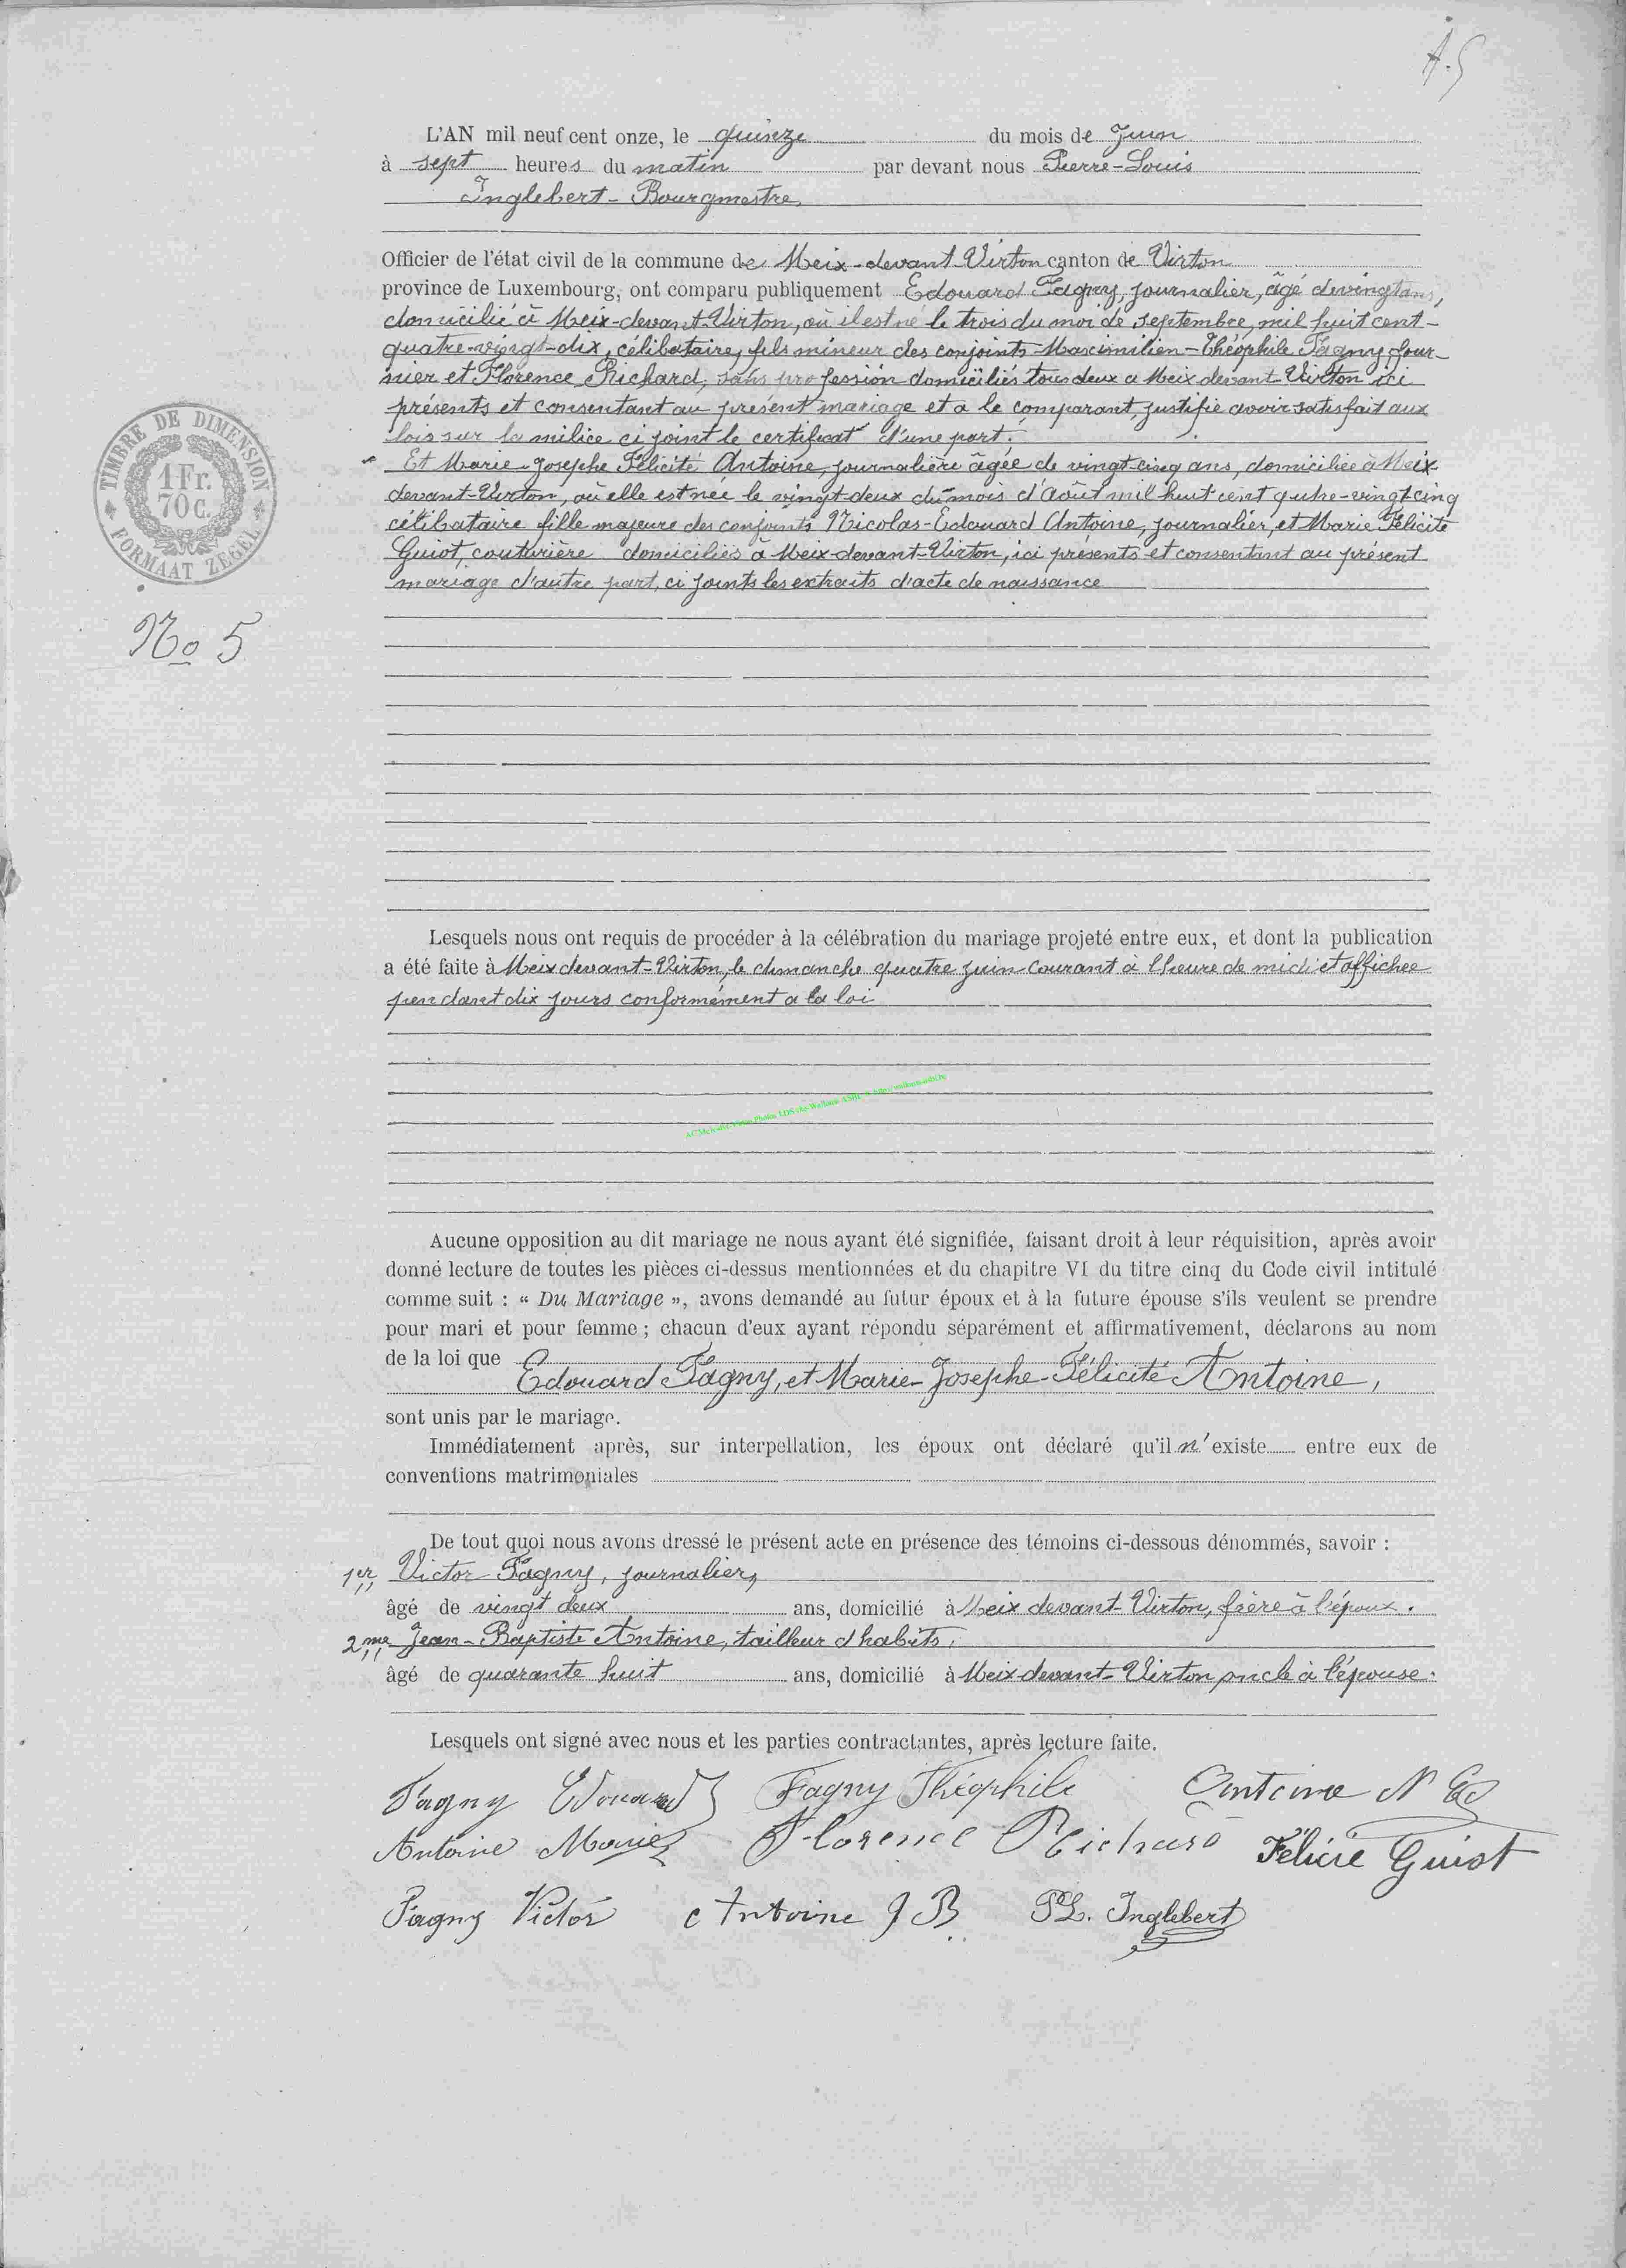 A.5
L'AN mil neuf cent onze, le quinze du mois de Juin
à sept heures du matin par devant nous Pierre-Louis
Inglebert - Bourgmestre,
Officier de l'état civil de la commune de Meix-devant-Virton canton de Virton
province de Luxembourg, ont comparu publiquement Edouard Fagny, journalier, âgé de vingt ans,
domicilié à Meix-devant-Virton, où il est né le trois du moi de septembre, mil huit cent-
quatre-vingt-dix, célibataire, fils mineur des conjoints Maximilien-Théophile Fagny, four-
nier et Florence Richard, sans profession domiciliés tous deux a Meix devant-Virton ici
présents et consentant au présent mariage et a le comparant, justifié avoir satisfait aux
lois sur la milice ci joint le certificat d'une part.
Et Marie-Josephe Félicité Antoine, journalière âgée de vingt-cinq ans, domiciliée à Meix-
devant-Virton, où elle est née le vingt-deux du mois d'août mil huit cent quatre-vingt-cinq
célibataire fille majeure des conjoints Nicolas-Edouard Antoine, journalier, et Marie Félicité
Guiot, couturière domiciliés à Meix-devant-Virton, ici présents et consentant au présent
mariage d'autre part, ci joints les extraits d'acte de naissance
TIMBRE DE DIMENSION
1 Fr.
70 C.
FORMAAT ZEGEL
No 5
Lesquels nous ont requis de procéder à la célébration du mariage projeté entre eux, et dont la publication
a été faite à Meix devant-Virton, le dimanche quatre juin courant à l'heure de midi et affichée
pendant dix jours conformément a la loi
Aucune opposition au dit mariage ne nous ayant été signifiée, faisant droit à leur réquisition, après avoir
donné lecture de toutes les pièces ci-dessus mentionnées et du chapitre VI du titre cinq du Code civil intitulé
comme suit : « Du Mariage », avons demandé au futur époux et à la future épouse s'ils veulent se prendre
pour mari et pour femme ; chacun d'eux ayant répondu séparément et affirmativement, déclarons au nom
de la loi que
Edouard Fagny, et Marie-Josephe-Félicité Antoine,
sont unis par le mariage.
Immédiatement après, sur interpellation, les époux ont déclaré qu'il n'existe entre eux de
conventions matrimoniales
De tout quoi nous avons dressé le présent acte en présence des témoins ci-dessous dénommés, savoir :
1er Victor Fagny, journalier,
âgé de vingt deux ans, domicilié à Meix devant-Virton, frère à l'époux.
2me Jean-Baptiste Antoine, tailleur d'habits,
âgé de quarante huit ans, domicilié à Meix devant-Virton oncle à l'épouse.
Lesquels ont signé avec nous et les parties contractantes, après lecture faite.
Fagny Edouard Fagny Théophile Antoine N Ed
Antoine Marie Florence Richard Félicie Guiot
Fagny Victor Antoine J B. P L. Inglebert